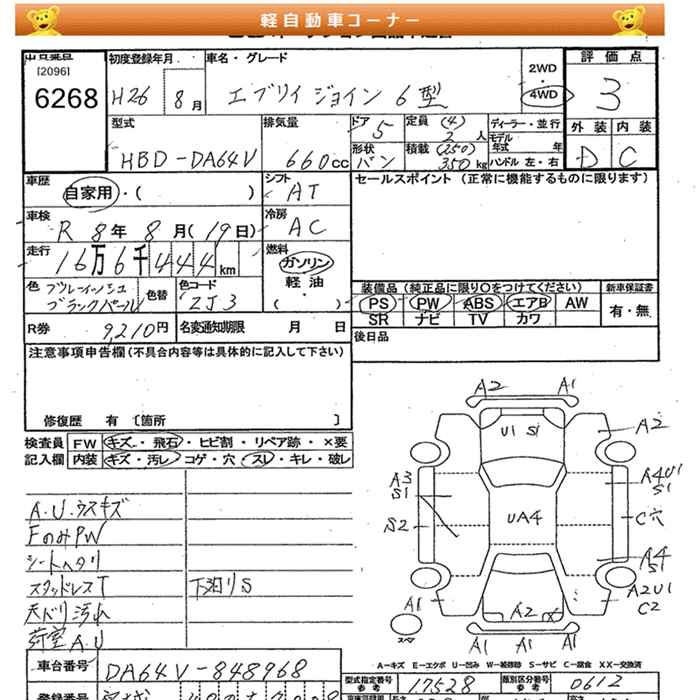 軽自動車コーナー
出品番号
[2096]
6268
初度登録年月
H26年8月
車名・グレード
エブリイ ジョイン 6型
2WD
・
4WD
評価点
3
型式
HBD-DA64V
排気量
660cc
ドア
5
形状
バン
定員 (4)
2人
積載 (250)
350kg
ディーラー・並行
モデル
年式 年
ハンドル 左・右
外装 内装
D C
車歴
自家用・( )
シフト
AT
セールスポイント (正常に機能するものに限ります)
車検
R 8年 8月(19日)
冷房
AC
走行
16万6千444km
燃料
ガソリン
軽油
( )
色
ブルーイッシュ
ブラックパール
色替
色コード
ZJ3
装備品 (純正品に限り○をつけてください)
新車保証書
PS PW ABS エアB AW
SR ナビ TV カワ
有・無
R券
9,210円
名変通知期限 月 日
後日品
注意事項申告欄(不具合内容等は具体的に記入して下さい)
修復歴 有 〔箇所 〕
検査員 FW キズ・飛石・ヒビ割・リペア跡・×要
記入欄 内装 キズ・汚レ・コゲ・穴・スレ・キレ・破レ
A.U.ウスキズ
FのみPW
シートヘタリ
スタッドレスT
下廻りS
天ドリ汚れ
荷室A.U
A2 A1
U1 S1
A2
A3
S1
A4U1
S1
S2
UA4
C穴
A4
S1
A2U1
C2
A1
スペア
A2
A1 A1 A1
A―キズ E―エクボ U―凹み W―補修跡 S―サビ C―腐食 XX―交換済
車台番号
DA64V-848968
型式指定番号
参考
17528
類別区分番号
参考
0612
登録番号